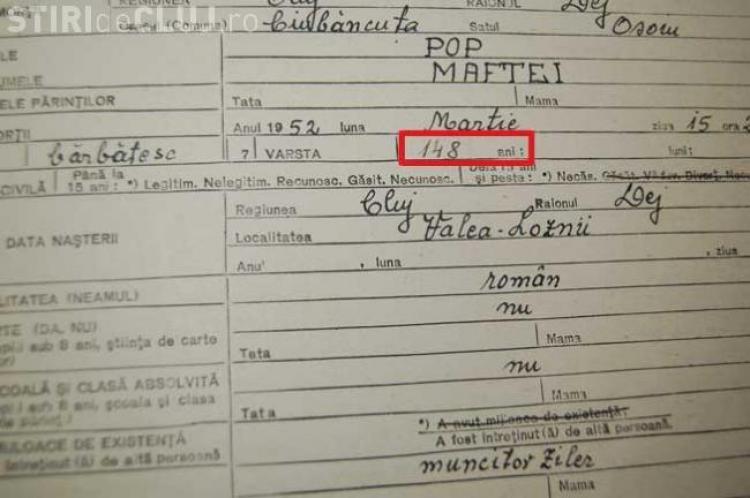 STIRideCLUJ.ro
Cluj RAIONUL Dej
(Comuna) Ciubăncuța Satul Osoru
POP
MAFTEI
ELE PĂRINȚILOR Tata Mama
Anul 1952 luna Martie ziua 15 ora
bărbătesc 7 VARSTA 148 ani: luni:
CIVILĂ Până la 15 ani: *) Legitim. Nelegitim. Recunosc. Găsit. Necunosc. și peste: *) Necăs.
Regiunea Cluj Raionul Dej
DATA NAȘTERII Localitatea Valea-Loznii
Anul , luna , ziua
LITATEA (NEAMUL) român
(DA, NU) nu
sub 8 ani, știința de carte
Tata Mama
nu
COALĂ ȘI CLASĂ ABSOLVITĂ
sub 8 ani, școala și clasa
Tata Mama
*) A avut mijloace de existență:
LOACE DE EXISTENȚĂ A fost întreținut(ă) de altă persoană.
întreținut(ă) de altă persoană
muncitor ziler
Mama